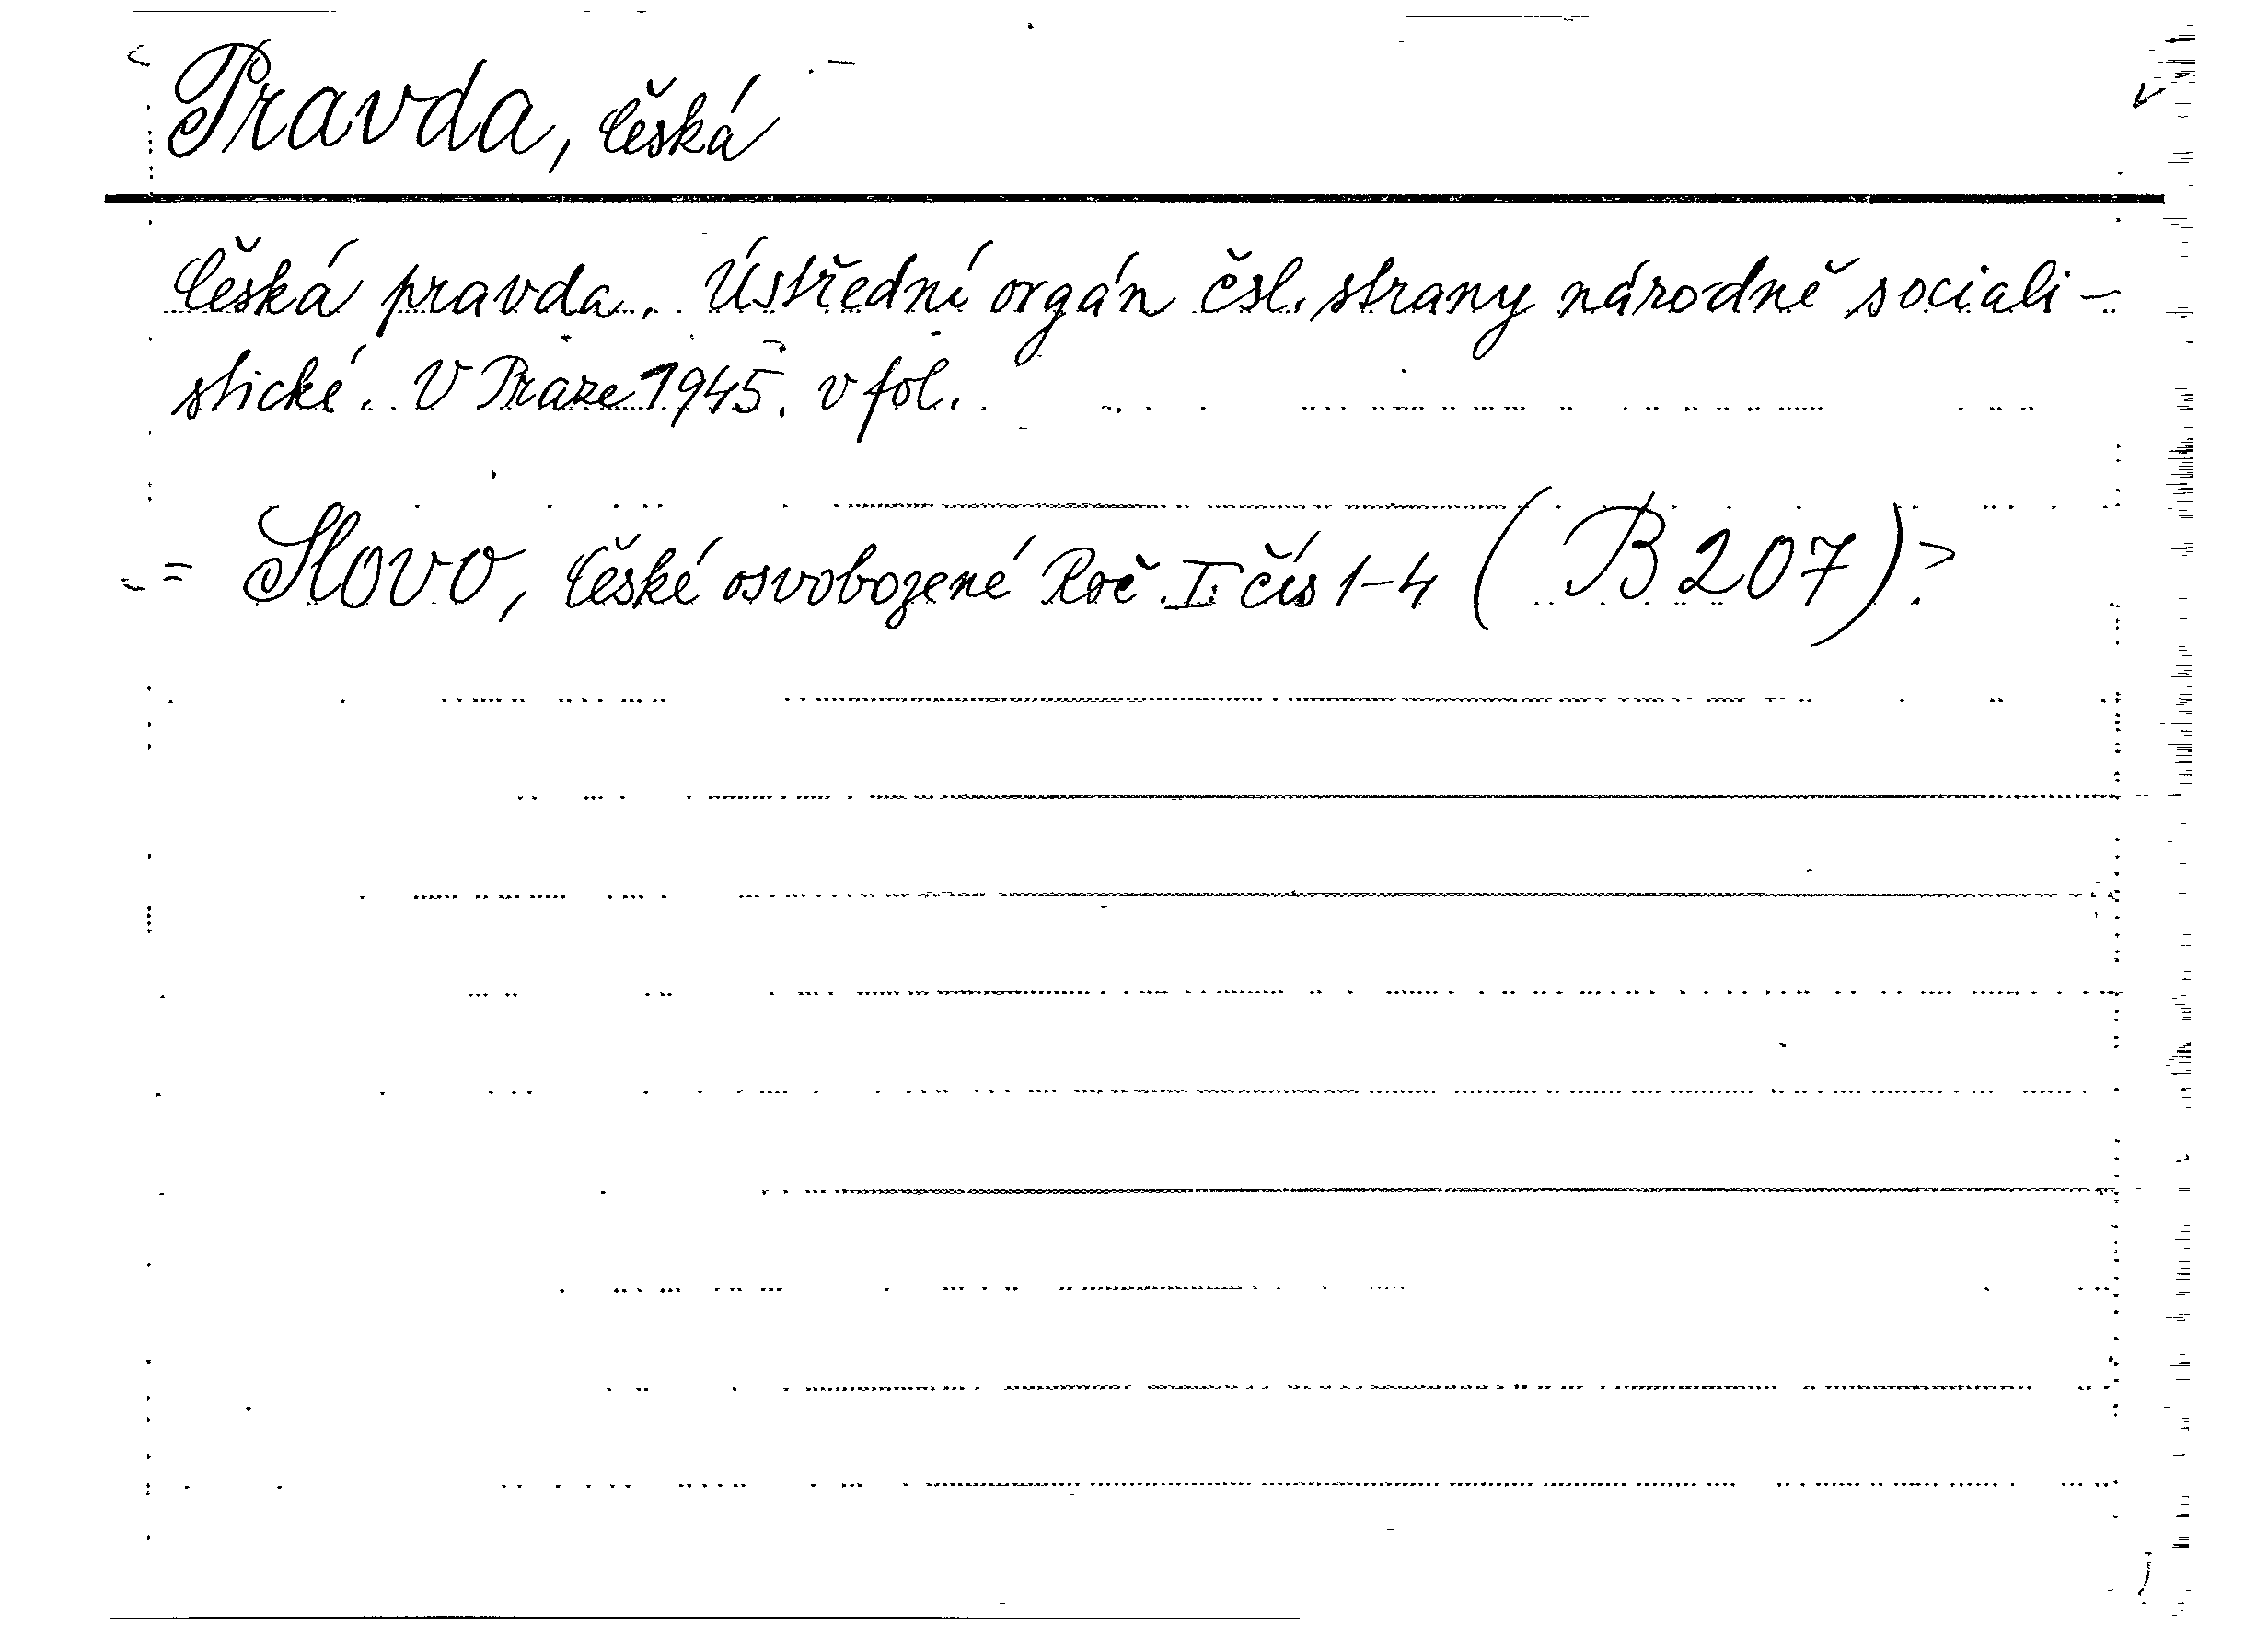 Pravda, Česká
Česká pravda. Ústřední orgán čsl. strany národně sociali-
stické. V Praze 1945. v fol.
= Slovo, České osvobozené Roč. I. čís 1-4 (B 207)